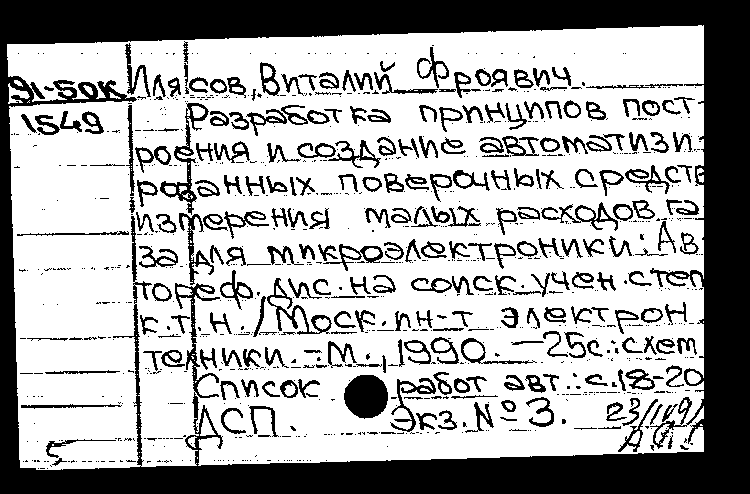 91-50к Илясов, Виталий Фроявич.
1549 Разработка принципов пост-
роения и создание автоматизи-
рованных поверочных средств
измерения малых расходов га
за для микроэлектроники: Ав-
тореф. дис. на соиск. учен. степ
к.т.н. / Моск. ин-т электрон.
техники. - М., 1990. - 25с.: схем
Список работ авт.: с.18-20
ДСП. Экз. № 3.
5